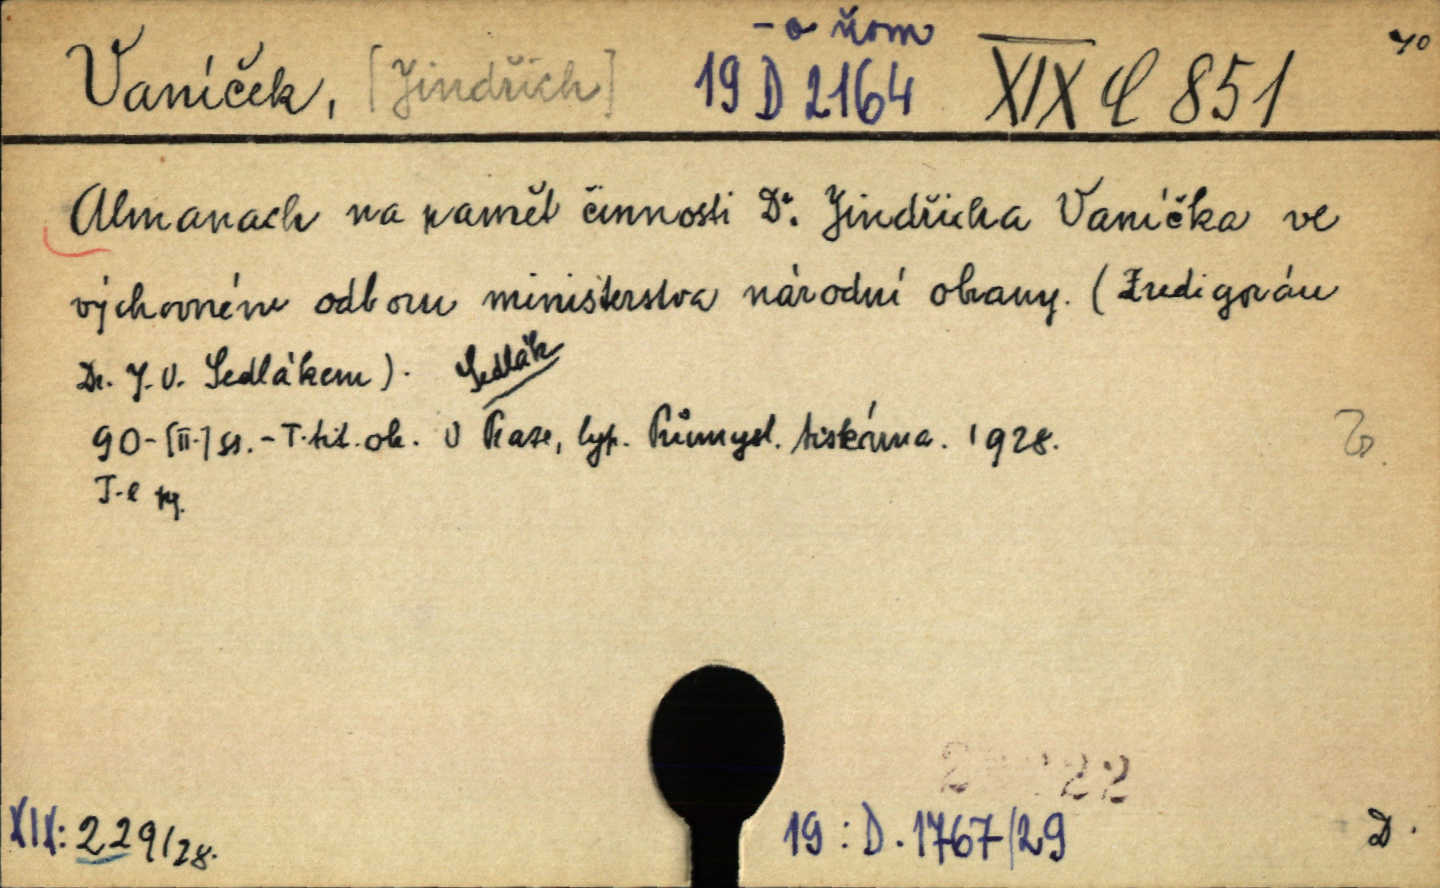 - o ňom
Vaníček, [Jindřich] 19 D 2164 XIX C 851
Almanach na paměť činnosti Dr. Jindřicha Vaníčka ve
výchovném odboru ministerstva národní obrany. (Zredigován
Dr. J. V. Sedlákem). Sedlák
90-[II.] ss. - T. tit. ob. V Praze, typ. Průmysl. tiskárna. 1928.
XIX: 229/28. 19 : D. 1767/29 D.